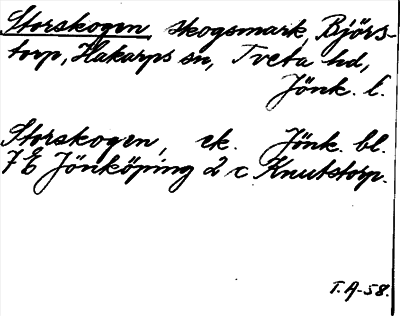 Storskogen skogsmark, Björs-
torp, Hakarps sn, Tveta hd,
Jönk. l.
Storskogen, ek. Jönk. bl.
7 E Jönköping 2 c Knutstorp.
T.A-58.